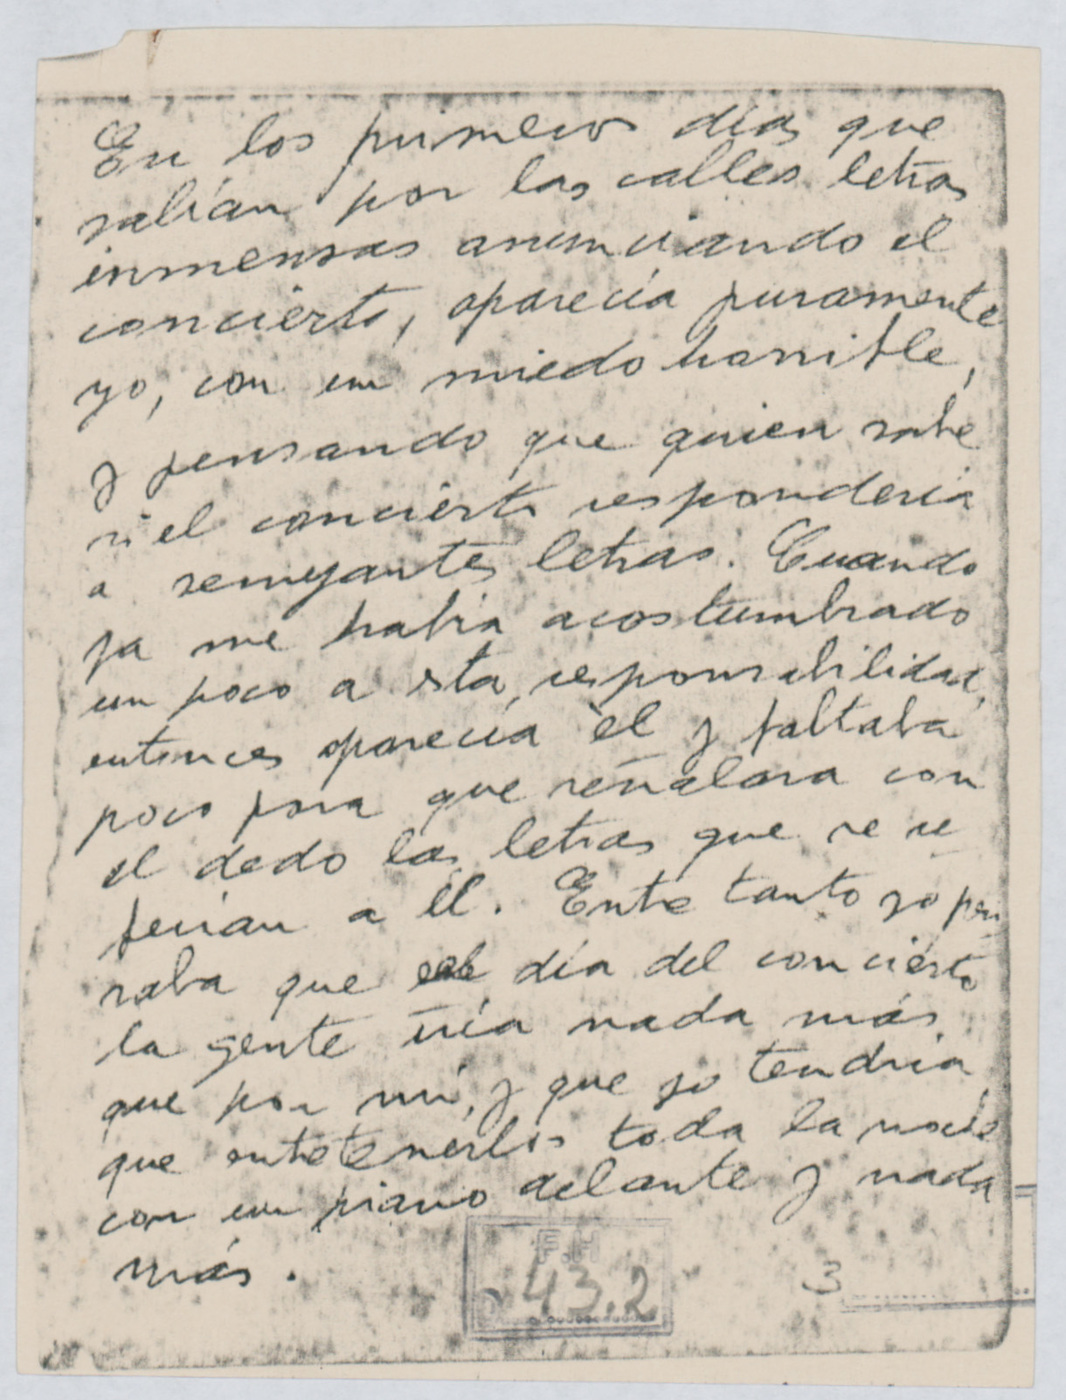 En los primeros días que
salían por las calles letras
inmensas anunciando el
concierto, aparecía puramente
yo, con un miedo horrible,
y pensando que quien sabe
si el concierto respondería
a semejantes letras. Cuando
ya me había acostumbrado
un poco a esta responsabilidad,
entonces aparecía él y faltaba
poco para que señalara con
el dedo las letras que se re
ferían a él. Entre tanto yo pen
saba que el día del concierto
la gente iría nada más
que por mí, y que yo tendría
que entretenerlos toda la noche
con un piano delante y nada
más.
F.H
43.2
3